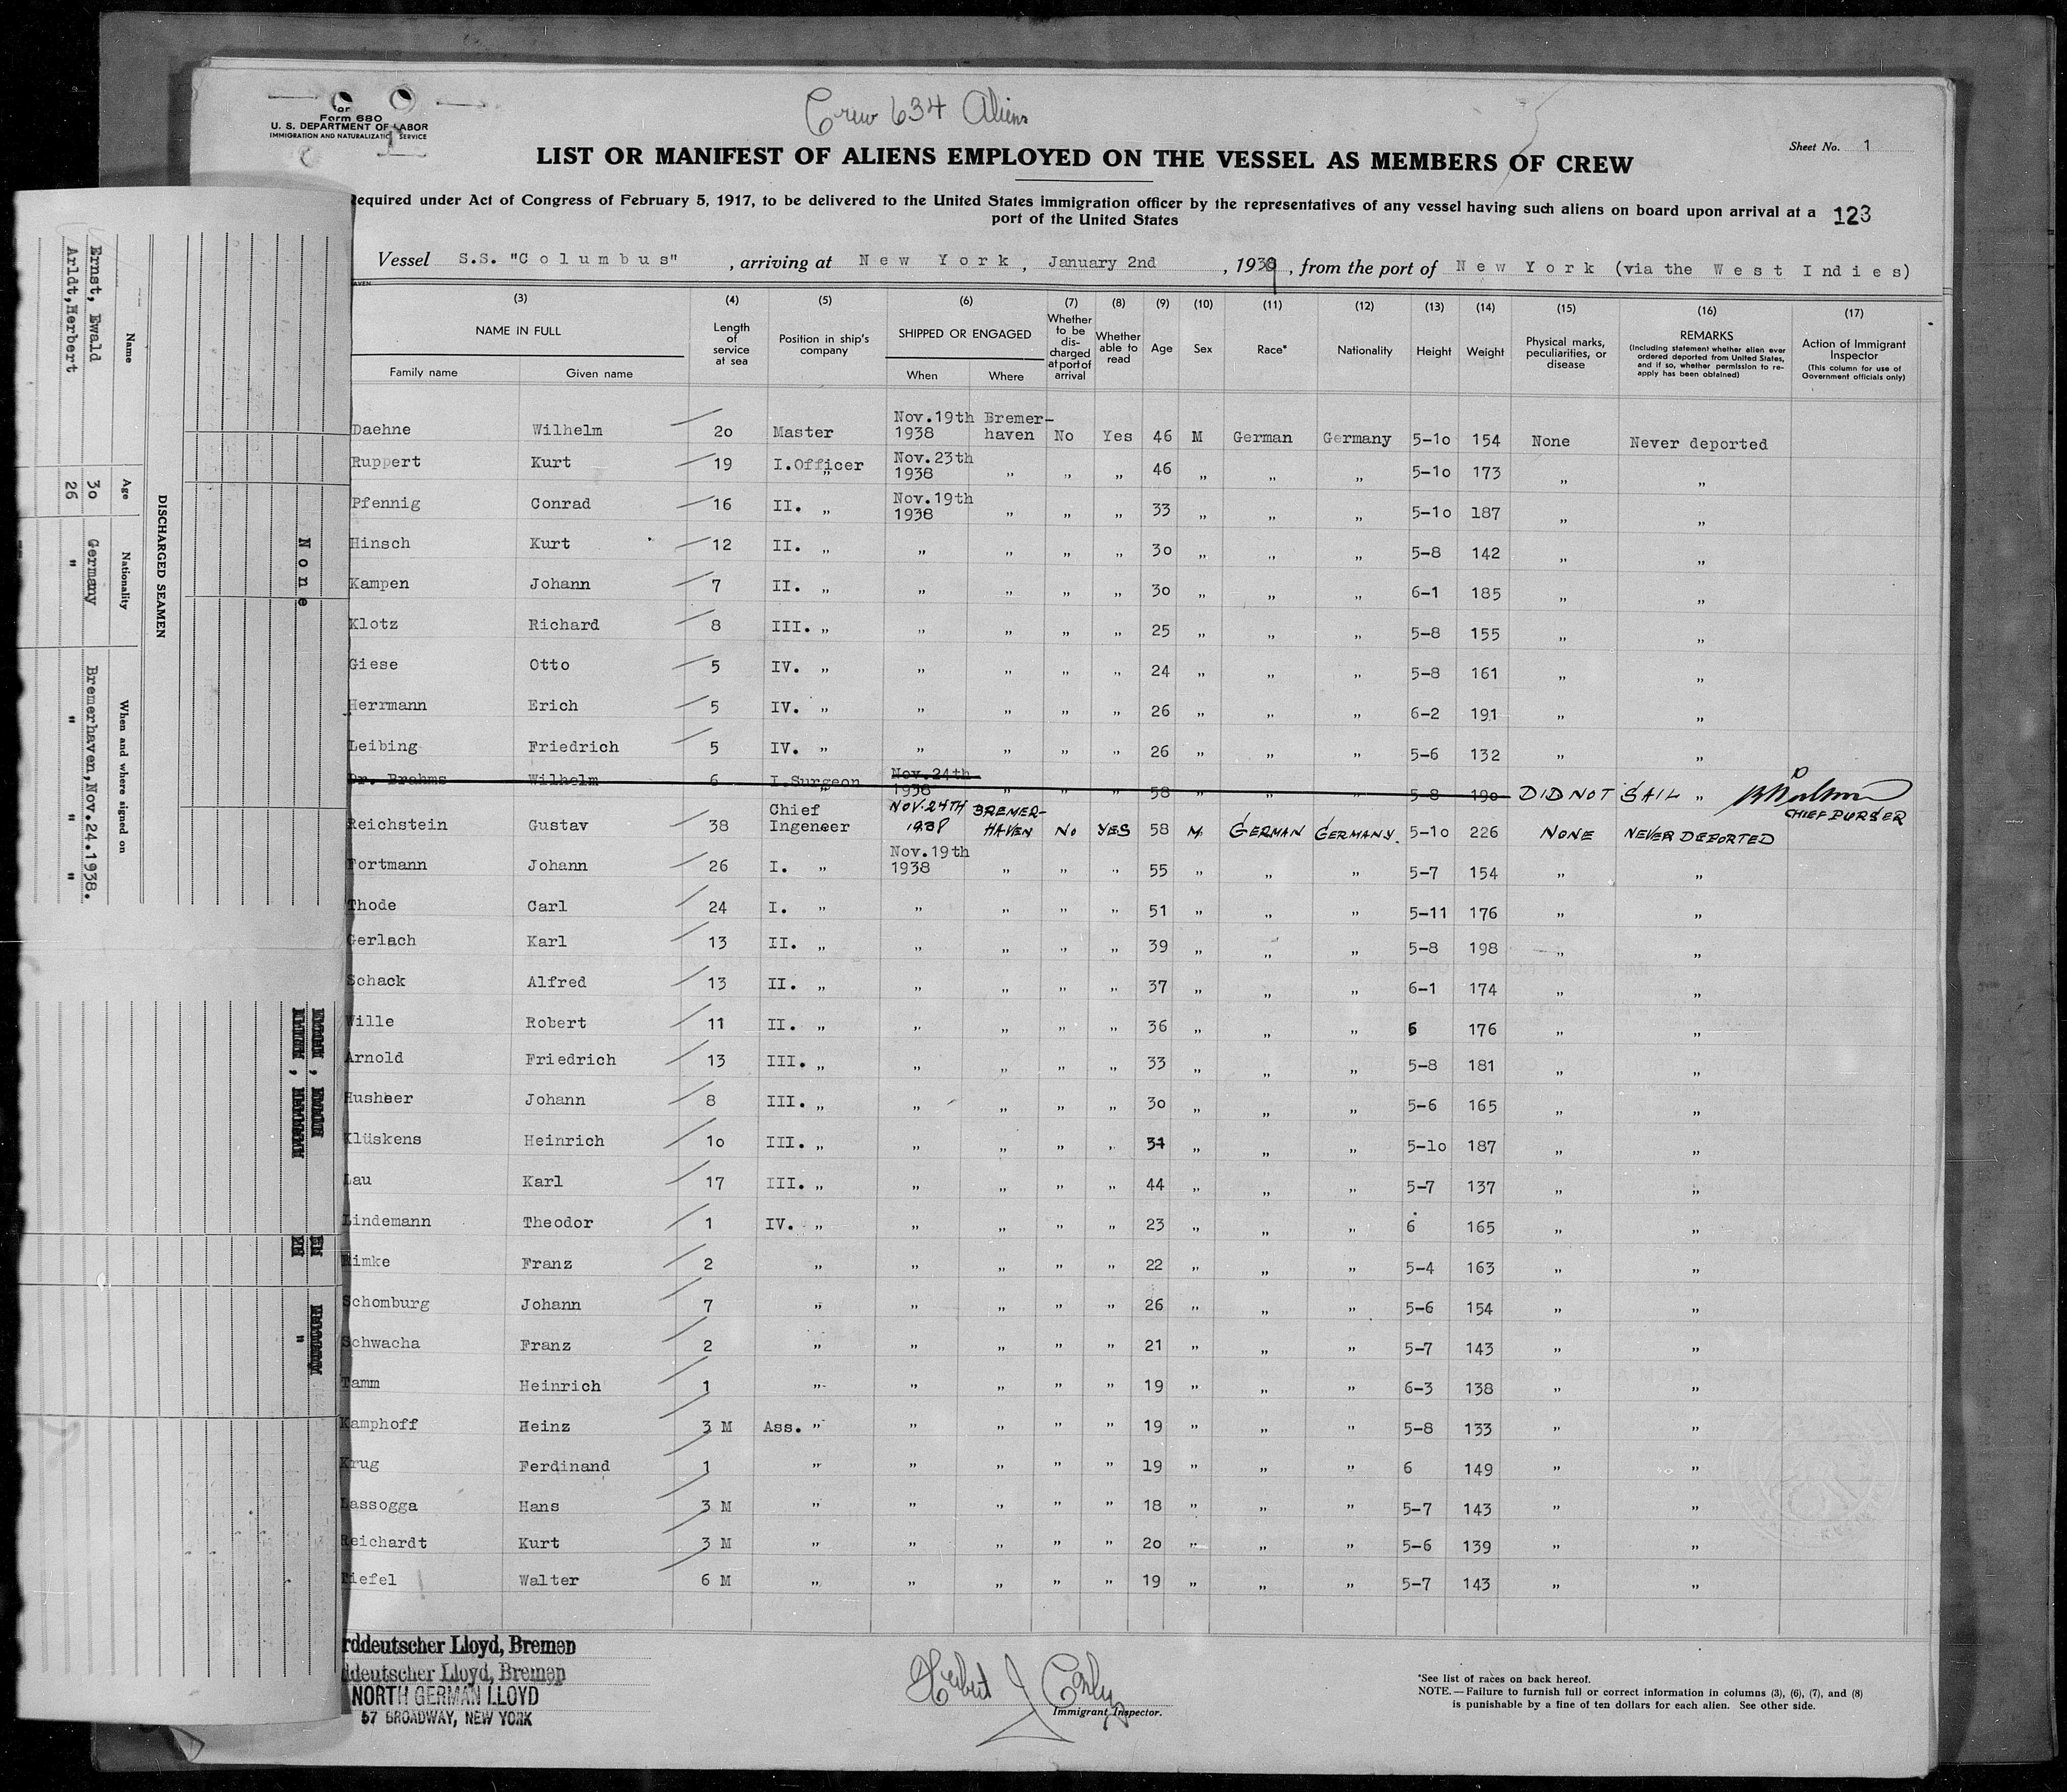 Crew 634 Aliens
Form 680
U. S. DEPARTMENT OF LABOR
IMMIGRATION AND NATURALIZATION SERVICE
Sheet No. 1
LIST OR MANIFEST OF ALIENS EMPLOYED ON THE VESSEL AS MEMBERS OF CREW
equired under Act of Congress of February 5, 1917, to be delivered to the United States immigration officer by the representatives of any vessel having such aliens on board upon arrival at a
port of the United States
123
Vessel S.S. "Columbus" , arriving at New York, January 2nd , 1939 , from the port of New York (via the West Indies)
(3) (4) (5) (6) (7) (8) (9) (10) (11) (12) (13) (14) (15) (16) (17)
NAME IN FULL
Family name Given name
Length of service at sea
Position in ship's company
SHIPPED OR ENGAGED
When Where
Whether to be discharged at port of arrival
Whether able to read
Age Sex Race* Nationality Height Weight
Physical marks, peculiarities, or disease
REMARKS
(Including statement whether alien ever ordered deported from United States, and if so, whether permission to re-apply has been obtained)
Action of Immigrant Inspector
(This column for use of Government officials only)
Daehne Wilhelm 20 Master Nov.19th 1938 Bremer-haven No Yes 46 M German Germany 5-10 154 None Never deported
Ruppert Kurt 19 I.Officer Nov.23th 1938 " " " 46 " " " 5-10 173 " "
Pfennig Conrad 16 II. " Nov.19th 1938 " " " 33 " " " 5-10 187 " "
Hinsch Kurt 12 II. " " " " " 30 " " " 5-8 142 " "
Kampen Johann 7 II. " " " " " 30 " " " 6-1 185 " "
Klotz Richard 8 III. " " " " " 25 " " " 5-8 155 " "
Giese Otto 5 IV. " " " " " 24 " " " 5-8 161 " "
Herrmann Erich 5 IV. " " " " " 26 " " " 6-2 191 " "
Leibing Friedrich 5 IV. " " " " " 26 " " " 5-6 132 " "
Dr. Brahms Wilhelm 6 I.Surgeon Nov.24th 1938 " " " 58 " " " 5-8 190 DID NOT SAIL "
CHIEF PURSER
Reichstein Gustav 38 Chief Ingeneer NOV. 24TH 1938 BREMER-HAVEN No YES 58 M. GERMAN GERMANY. 5-10 226 NONE NEVER DEPORTED
Fortmann Johann 26 I. " Nov.19th 1938 " " " 55 " " " 5-7 154 " "
Thode Carl 24 I. " " " " " 51 " " " 5-11 176 " "
Gerlach Karl 13 II. " " " " " 39 " " " 5-8 198 " "
Schack Alfred 13 II. " " " " " 37 " " " 6-1 174 " "
Wille Robert 11 II. " " " " " 36 " " " 6 176 " "
Arnold Friedrich 13 III. " " " " " 33 " " " 5-8 181 " "
Husheer Johann 8 III. " " " " " 30 " " " 5-6 165 " "
Klüskens Heinrich 10 III. " " " " " 31 " " " 5-10 187 " "
Lau Karl 17 III. " " " " " 44 " " " 5-7 137 " "
Lindemann Theodor 1 IV. " " " " " 23 " " " 6 165 " "
imke Franz 2 " " " " " 22 " " " 5-4 163 " "
Schomburg Johann 7 " " " " " 26 " " " 5-6 154 " "
Schwacha Franz 2 " " " " " 21 " " " 5-7 143 " "
Tamm Heinrich 1 " " " " " 19 " " " 6-3 138 " "
Kamphoff Heinz 3 M Ass. " " " " " 19 " " " 5-8 133 " "
Krug Ferdinand 1 " " " " " 19 " " " 6 149 " "
Lassogga Hans 3 M " " " " " 18 " " " 5-7 143 " "
Reichardt Kurt 3 M " " " " " 20 " " " 5-6 139 " "
iefel Walter 6 M " " " " " 19 " " " 5-7 143 " "
rddeutscher Lloyd, Bremen
ddeutscher Lloyd, Bremen
NORTH GERMAN LLOYD
57 BROADWAY, NEW YORK
Immigrant Inspector.
*See list of races on back hereof.
NOTE.—Failure to furnish full or correct information in columns (3), (6), (7), and (8)
is punishable by a fine of ten dollars for each alien. See other side.
DISCHARGED SEAMEN
Name Age Nationality When and where signed on
Ernst, Ewald 30 Germany Bremerhaven,Nov.24.1938.
Arldt,Herbert 26 " " " "
None